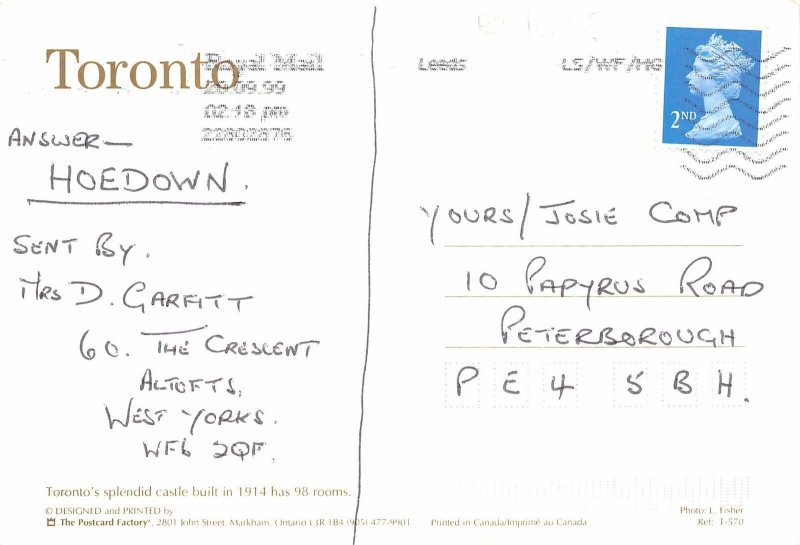 Toronto
Royal Mail
09 99
02:18 pm
Leeds
LS/WF/HG
2ND
ANSWER—
HOEDOWN.
SENT BY.
MRS D. GARFITT
60. THE CRESCENT
ALTOFTS,
WEST YORKS.
WF6 2QF.
YOURS/JOSIE COMP
10 PAPYRUS ROAD
PETERBOROUGH
PE4 5BH.
Toronto's splendid castle built in 1914 has 98 rooms.
© DESIGNED and PRINTED by
The Postcard Factory®, 2801 John Street, Markham, Ontario L3R 1B4 (905) 477-9901
Printed in Canada/Imprimé au Canada
Photo: L. Fisher
Ref: T-570